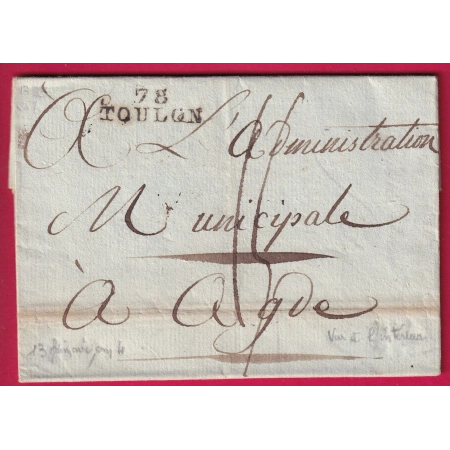 78
TOULON
A L'Administration
Municipale
à Agde
13 frimaire an 4 Vue à l'intérieur